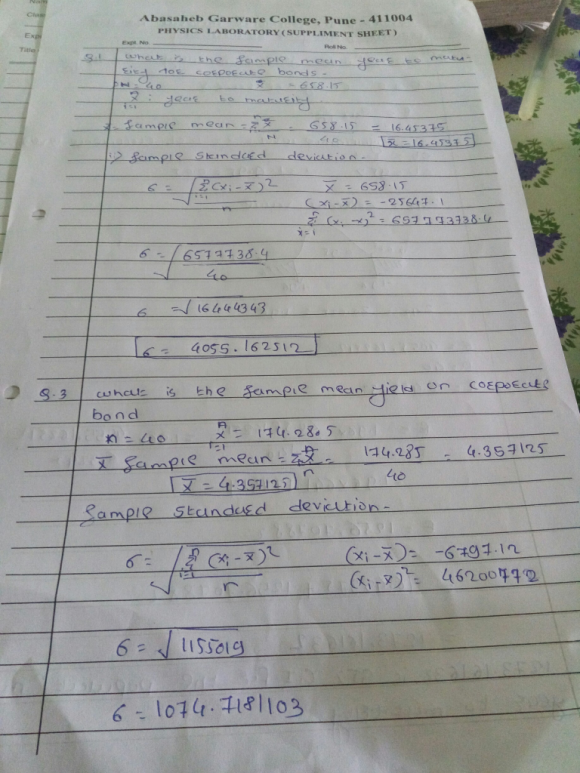 Abasaheb Garware College, Pune - 411004
PHYSICS LABORATORY (SUPPLIMENT SHEET)
Expt. No. Roll No.
Q.1 What is the sample mean year to matu-
rity for corporate bonds.
n = 40 Σx = 658.15
year to maturity
Sample mean = 658.15 / 40 = 16.45375
x̄ = 16.45375
1) Sample standard deviation.
σ = √(Σ(xi - x̄)² / n) x̄ = 658.15
(xi - x̄) = -25647.1
Σ(xi - x)² = 657773738.4
σ = √(6577738.4 / 40)
σ = √16444343
σ = 4055.162512
Q.3 What is the sample mean yield on corporate
bond
n = 40 Σx = 174.28.5
x̄ Sample mean = Σx / n = 174.285 / 40 = 4.357125
x̄ = 4.357125
Sample standard deviation -
σ = √(Σ(xi - x̄)² / n) (xi - x̄) = -6797.12
(xi - x̄)² = 46200772
σ = √1155019
σ = 1074.7181103